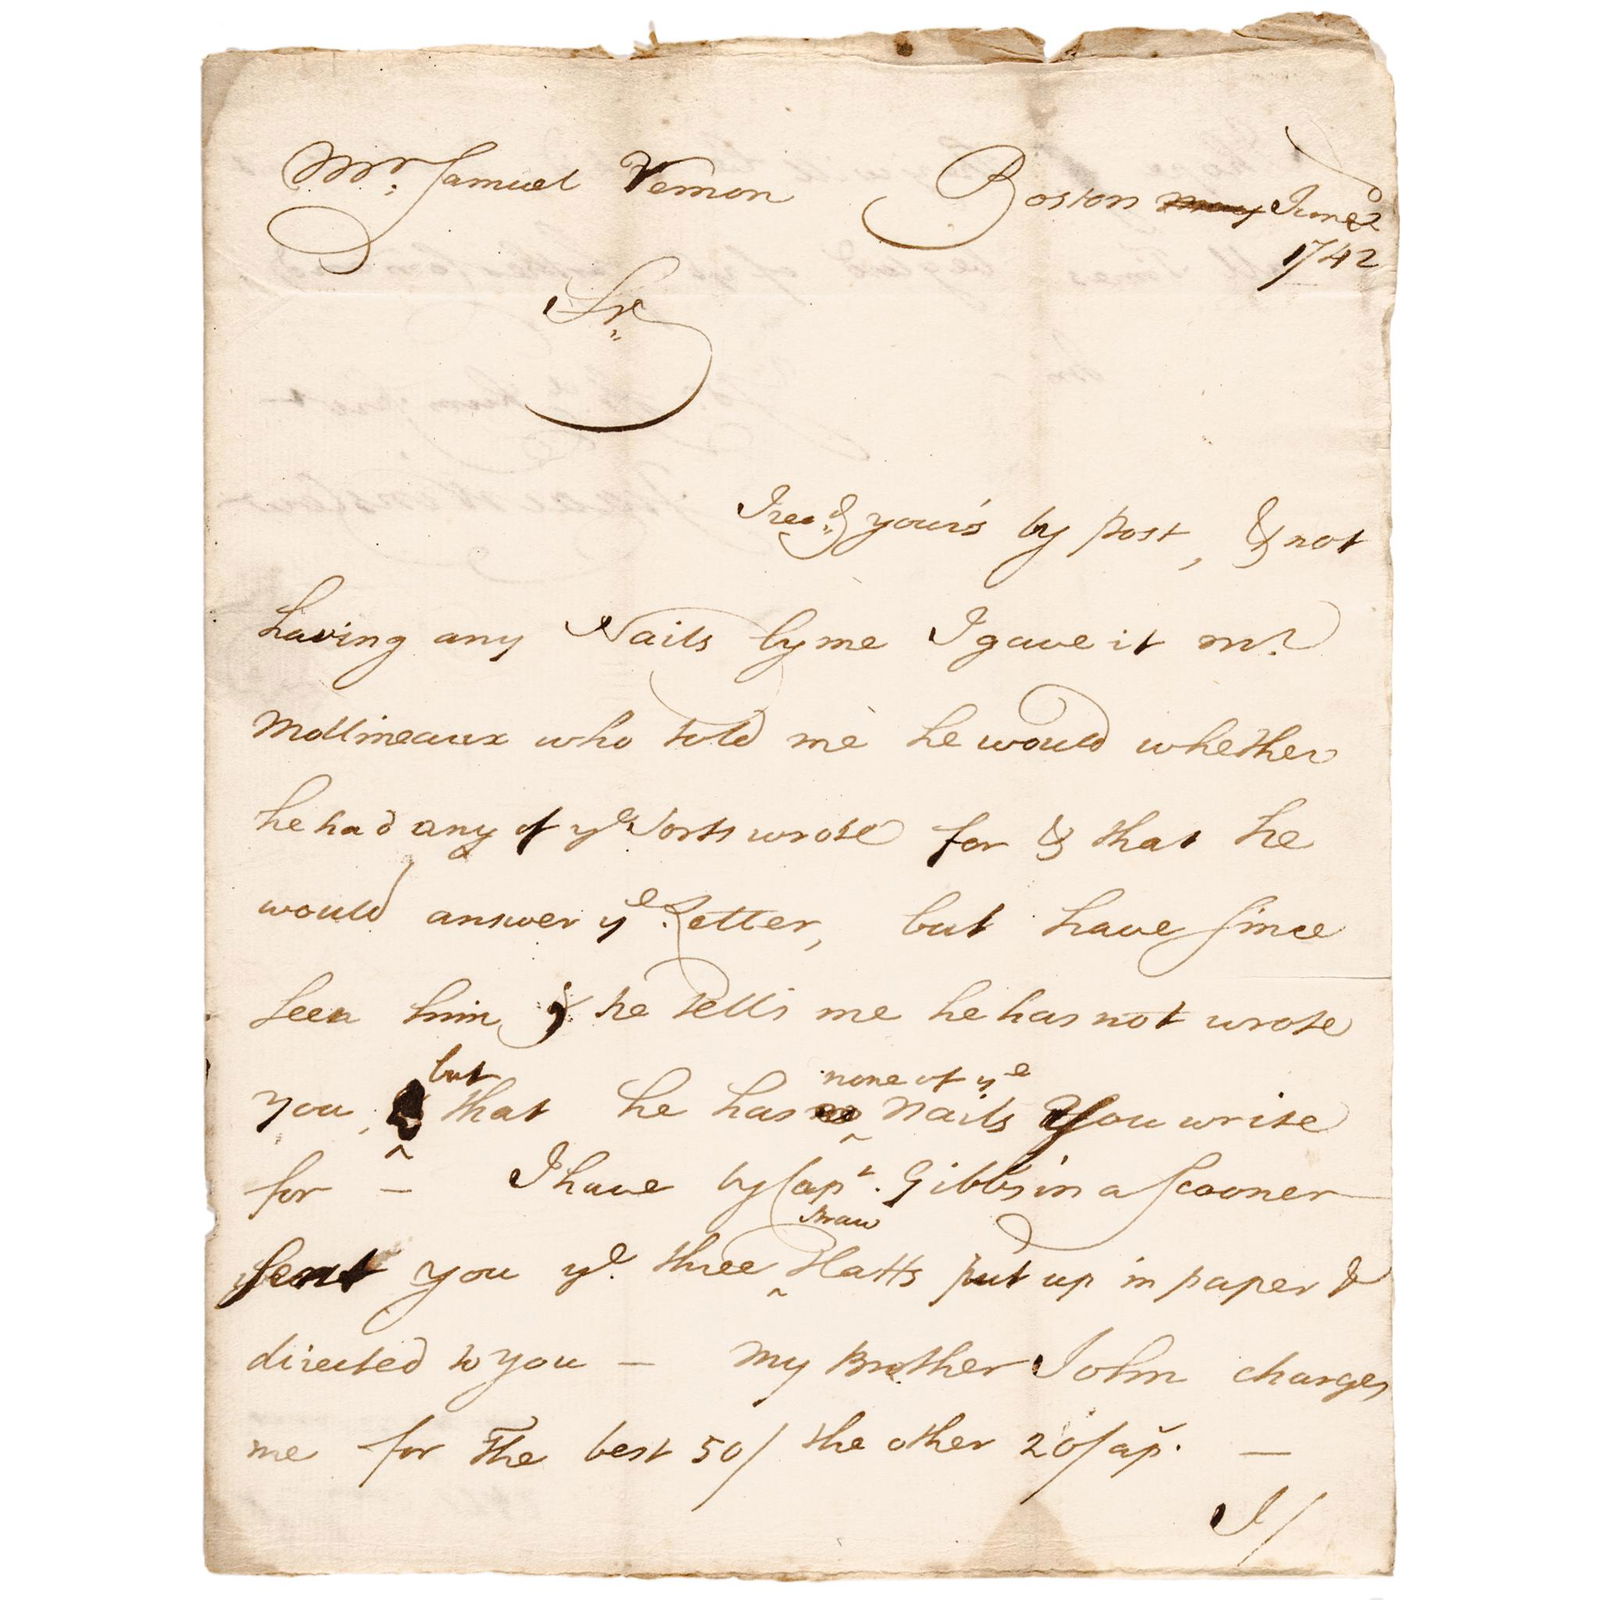 Mr: Samuel Vernon Boston May June 2d
1742
Sr
I recd yours by post, & not
having any Nails by me I gave it Mr
Mollineaux who told me he would whether
he had any of ye Sorts wrote for & that he
would answer ye Letter, but have Since
Seen him, & he tells me he has not wrote
but none of ye
you, that he has Nails You write
for – I have by Capt. Gibbs in a Scooner
straw
Sent you ye three Hatts put up in paper &
directed to you – My Brother John charges
me for The best 50/ the other 20/ a p. –
I/